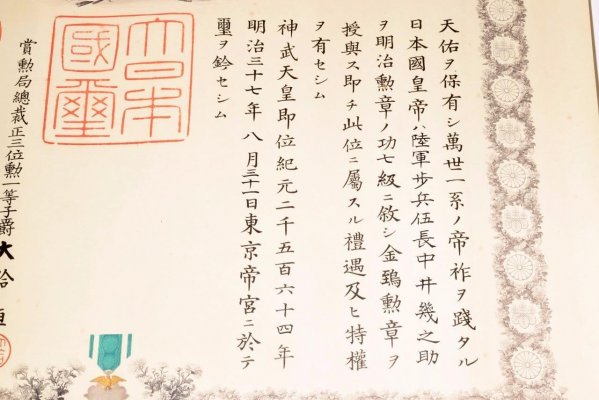 天佑ヲ保有シ萬世一系ノ帝祚ヲ踐タル
日本國皇帝ハ陸軍歩兵伍長中井幾之助
ヲ明治勲章ノ功七級ニ敘シ金鵄勲章ヲ
授與ス即チ此位ニ屬スル禮遇及ヒ特權
ヲ有セシム
神武天皇即位紀元二千五百六十四年
明治三十七年八月三十一日東京帝宮ニ於テ
璽ヲ鈐セシム
大日本
國璽
賞勲局總裁正三位勲一等子爵大給恒